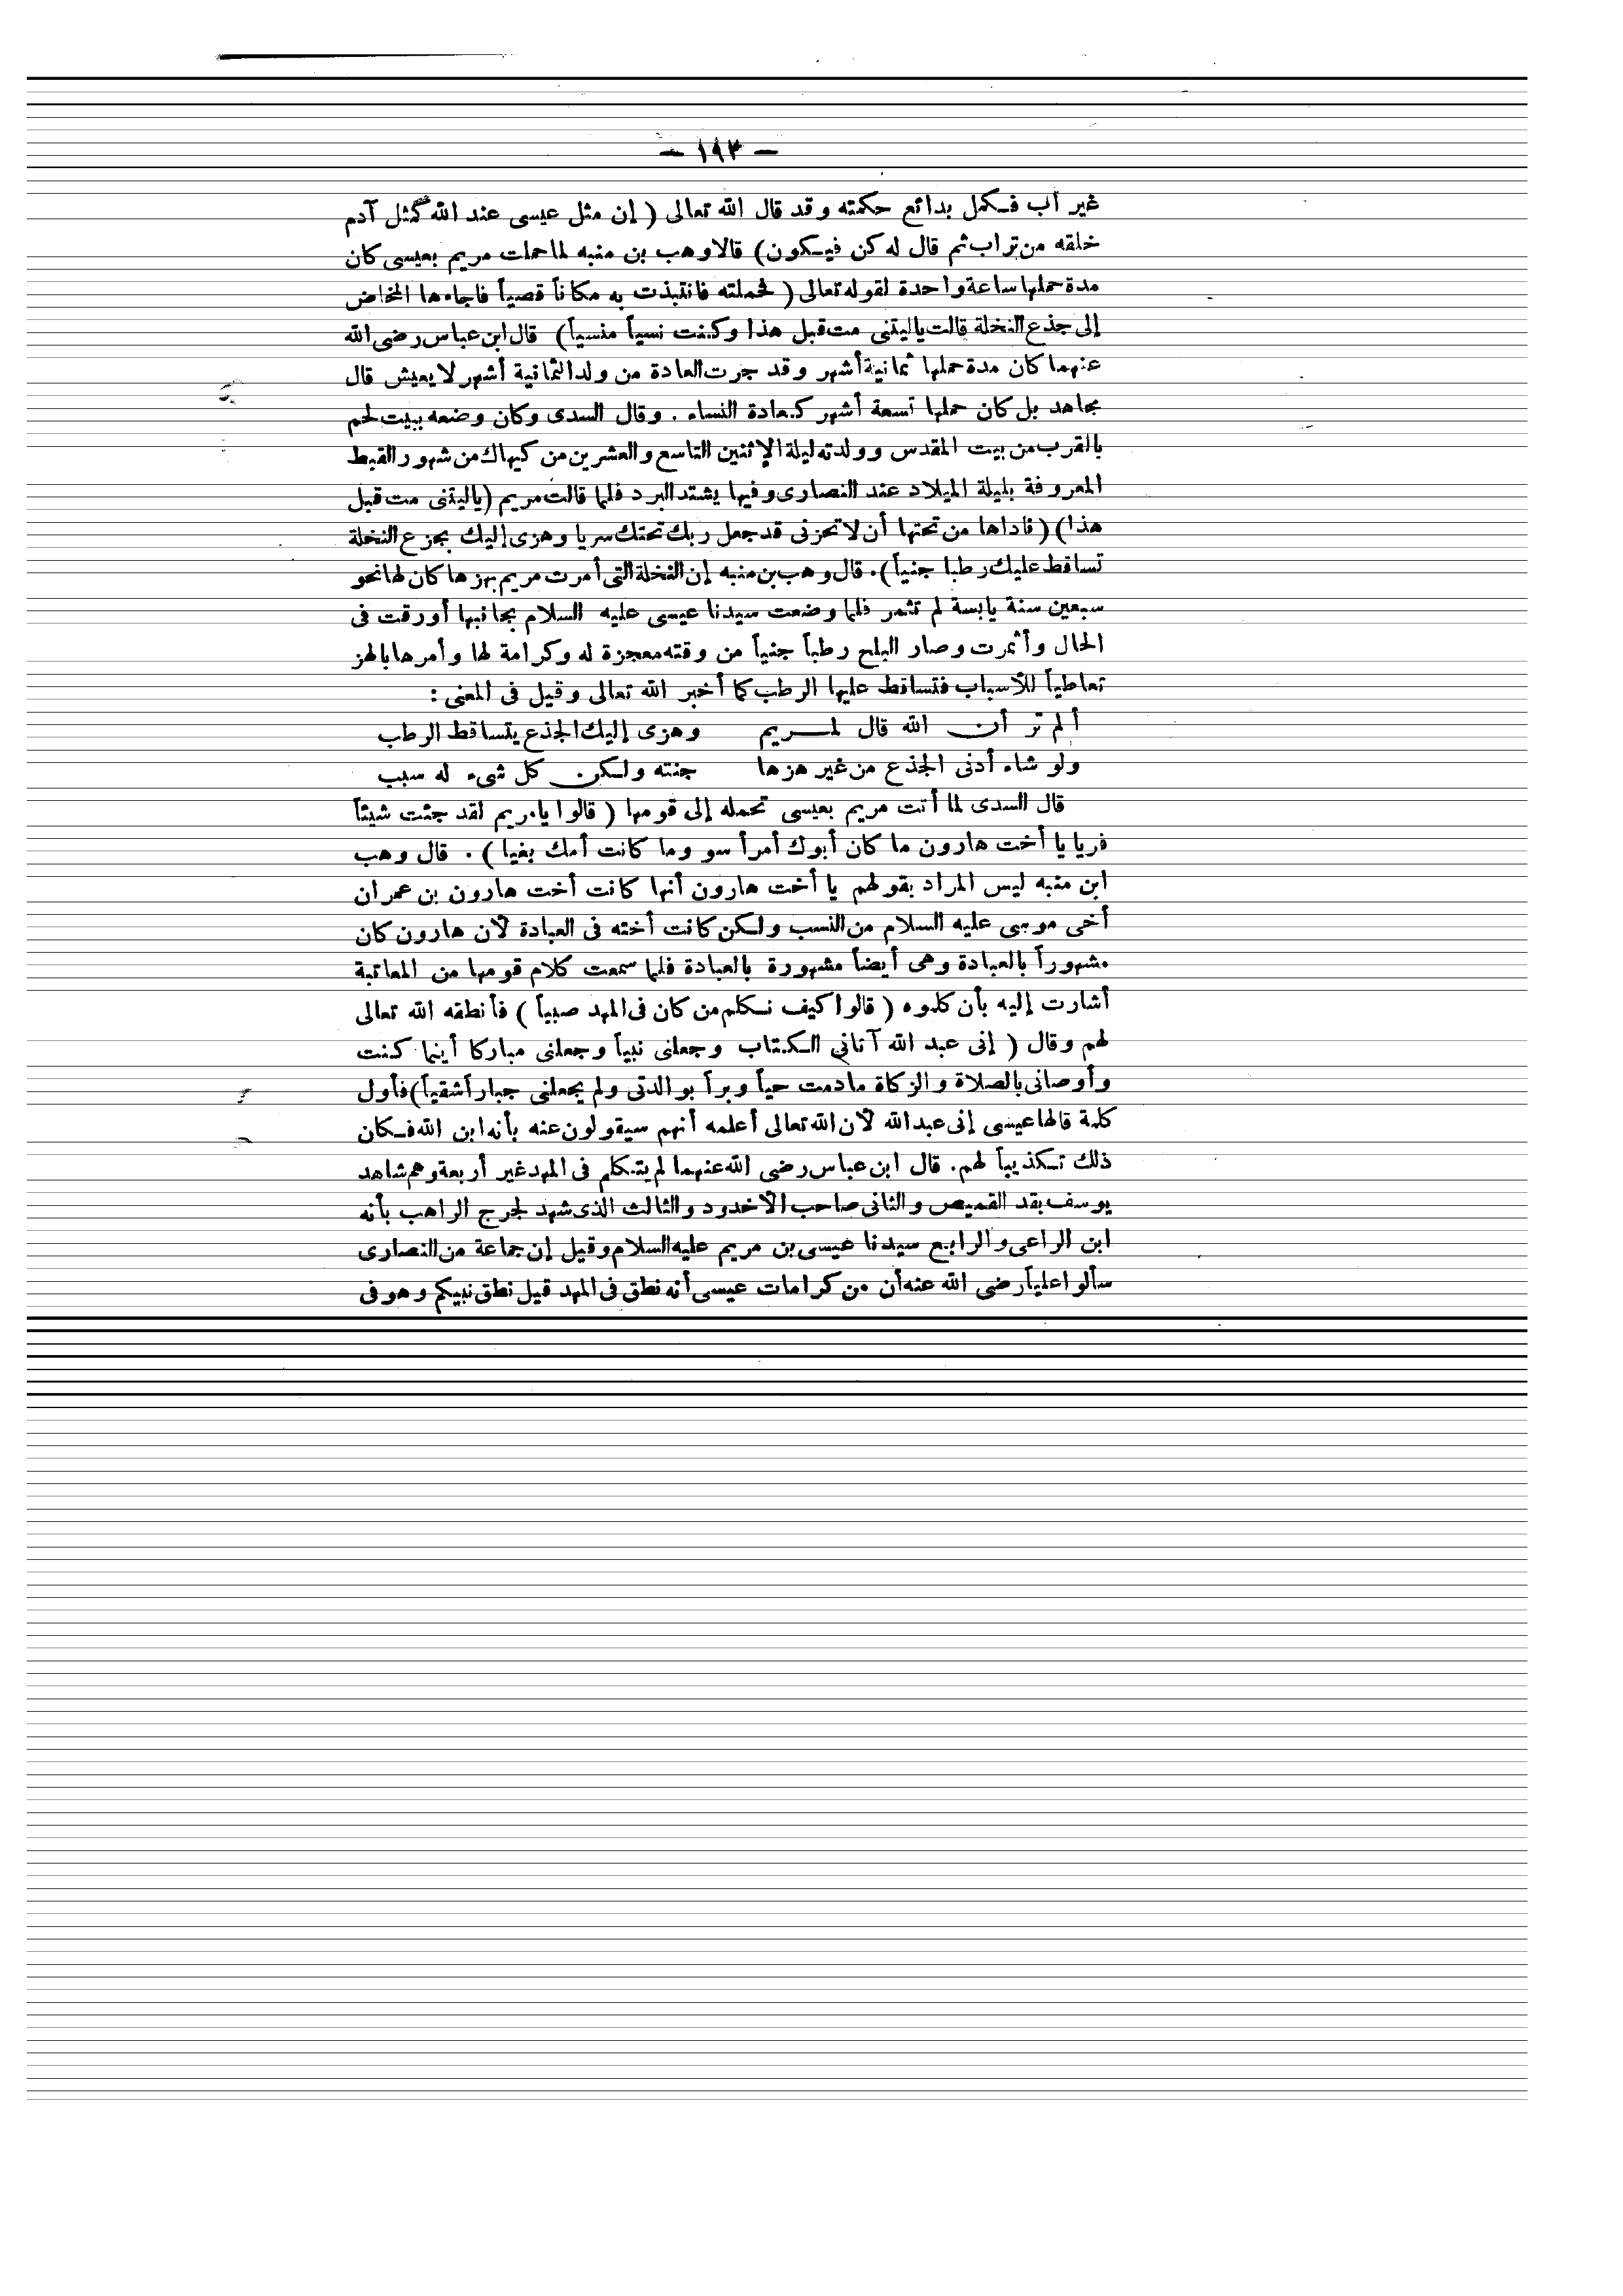 — ١٩٣ —
غير أب فكمل بدائع حكمته وقد قال الله تعالى ( إن مثل عيسى عند الله كمثل آدم
خلقه من تراب ثم قال له كن فيكون) قالا وهب بن منبه لما حملت مريم بعيسى كان
مدة حملها ساعة واحدة لقوله تعالى ( فحملته فانتبذت به مكاناً قصياً فاجاءها المخاض
إلى جذع النخلة قالت ياليتنى مت قبل هذا وكنت نسياً منسياً) قال ابن عباس رضى الله
عنهما كان مدة حملها ثمانية أشهر وقد جرت العادة من ولد الثمانية أشهر لا يعيش قال
مجاهد بل كان حملها تسعة أشهر كعادة النساء . وقال السدى وكان وضعه ببيت لحم
بالقرب من بيت المقدس وولدته ليلة الإثنين التاسع والعشرين من كيهاك من شهور القبط
المعروفة بليلة الميلاد عند النصارى وفيها يشتد البرد فلما قالت مريم (ياليتنى مت قبل
هذا) (فاداها من تحتها أن لا تحزنى قد جعل ربك تحتك سريا وهزى إليك بجزع النخلة
تساقط عليك رطبا جنياً). قال وهب بن منبه إن النخلة التى أمرت مريم بهزها كان لها نحو
سبعين سنة يابسة لم تثمر فلما وضعت سيدنا عيسى عليه السلام بجانبها أورقت فى
الحال وأثمرت وصار البلح رطباً جنياً من وقته معجزة له وكرامة لها وأمرها بالهز
تعاطياً للأسباب فتساقط عليها الرطب كما أخبر الله تعالى وقيل فى المعنى :
ألم تر أن الله قال لمريم وهزى إليك الجذع يتساقط الرطب
ولو شاء أدنى الجذع من غير هزها جنته ولكن كل شىء له سبب
قال السدى لما أتت مريم بعيسى تحمله إلى قومها ( قالوا يامريم لقد جئت شيئاً
فريا يا أخت هارون ما كان أبوك أمرأ سو وما كانت أمك بغيا ) . قال وهب
ابن منبه ليس المراد بقولهم يا أخت هارون أنها كانت أخت هارون بن عمران
أخى موسى عليه السلام من النسب ولكن كانت أخته فى العبادة لأن هارون كان
مشهوراً بالعبادة وهى أيضاً مشهورة بالعبادة فلما سمعت كلام قومها من المعاتبة
أشارت إليه بأن كلموه ( قالوا كيف نكلم من كان فى المهد صبياً ) فأنطقه الله تعالى
لهم وقال ( إنى عبد الله آتانى الكتاب وجعلنى نبياً وجعلنى مباركا أينما كنت
وأوصانى بالصلاة والزكاة مادمت حياً وبراً بوالدتى ولم يجعلنى جباراً شقياً) فأول
كلمة قالها عيسى إنى عبد الله لأن الله تعالى أعلمه أنهم سيقولون عنه بأنه ابن الله فكان
ذلك تكذيباً لهم. قال ابن عباس رضى الله عنهما لم يتكلم فى المهد غير أربعة وهم شاهد
يوسف بقد القميص والثانى صاحب الأخدود والثالث الذى شهد لجرج الراهب بأنه
ابن الراعى والرابع سيدنا عيسى بن مريم عليه السلام وقيل إن جماعة من النصارى
سألوا علياً رضى الله عنه أن من كرامات عيسى أنه نطق فى المهد قيل نطق نبيكم وهو فى